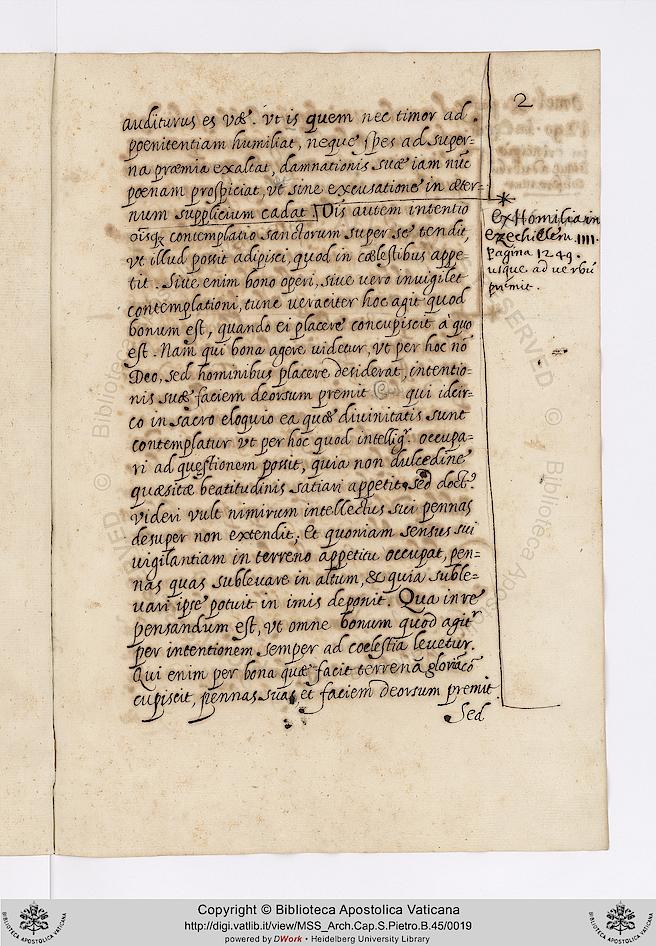 2
auditurus es væ. vt is quem nec timor ad
pœnitentiam humiliat, neque spes ad super=
na præmia exaltat, damnationis suæ iam nūc
pœnam prospiciat, vt sine excusatione in æter=
num supplicium cadat. Ois autem intentio
oīsq; contemplatio sanctorum super se tendit,
vt illud possit adipisci, quod in cœlestibus appe=
tit. Siue enim bono operi, siue vero inuigilet
contemplationi, tunc veraciter hoc agit quod
bonum est, quando ei placere concupiscit à quo
est. Nam qui bona agere uidetur, vt per hoc nō
Deo, sed hominibus placere desiderat, intentio=
nis suæ faciem deorsum premit qui idcir=
co in sacro eloquio ea quæ diuinitatis sunt
contemplatur vt per hoc quod intelligr. occupa=
ri ad quęstionem possit, quia non dulcedine
quæsitæ beatitudinis satiari appetit, sed doct9
videri vult nimirum intellectus sui pennas
desuper non extendit; et quoniam sensus sui
uigilantiam in terreno appetitu occupat, pen=
nas quas subleuare in altum, & quia suble=
uari ipse potuit in imis deponit. Qua in re
pensandum est, vt omne bonum quod agitr
per intentionem semper ad cœlestia leuetur.
Qui enim per bona quæ facit terrenā gloriā cō
cupiscit, pennas suas et faciem deorsum premit.
Sed
*
Ex Homilia in
ezechielem IIII.
Pagina 1249.
usque ad verbū
premit.
Copyright © Biblioteca Apostolica Vaticana
http://digi.vatlib.it/view/MSS_Arch.Cap.S.Pietro.B.45/0019
powered by DWork • Heidelberg University Library